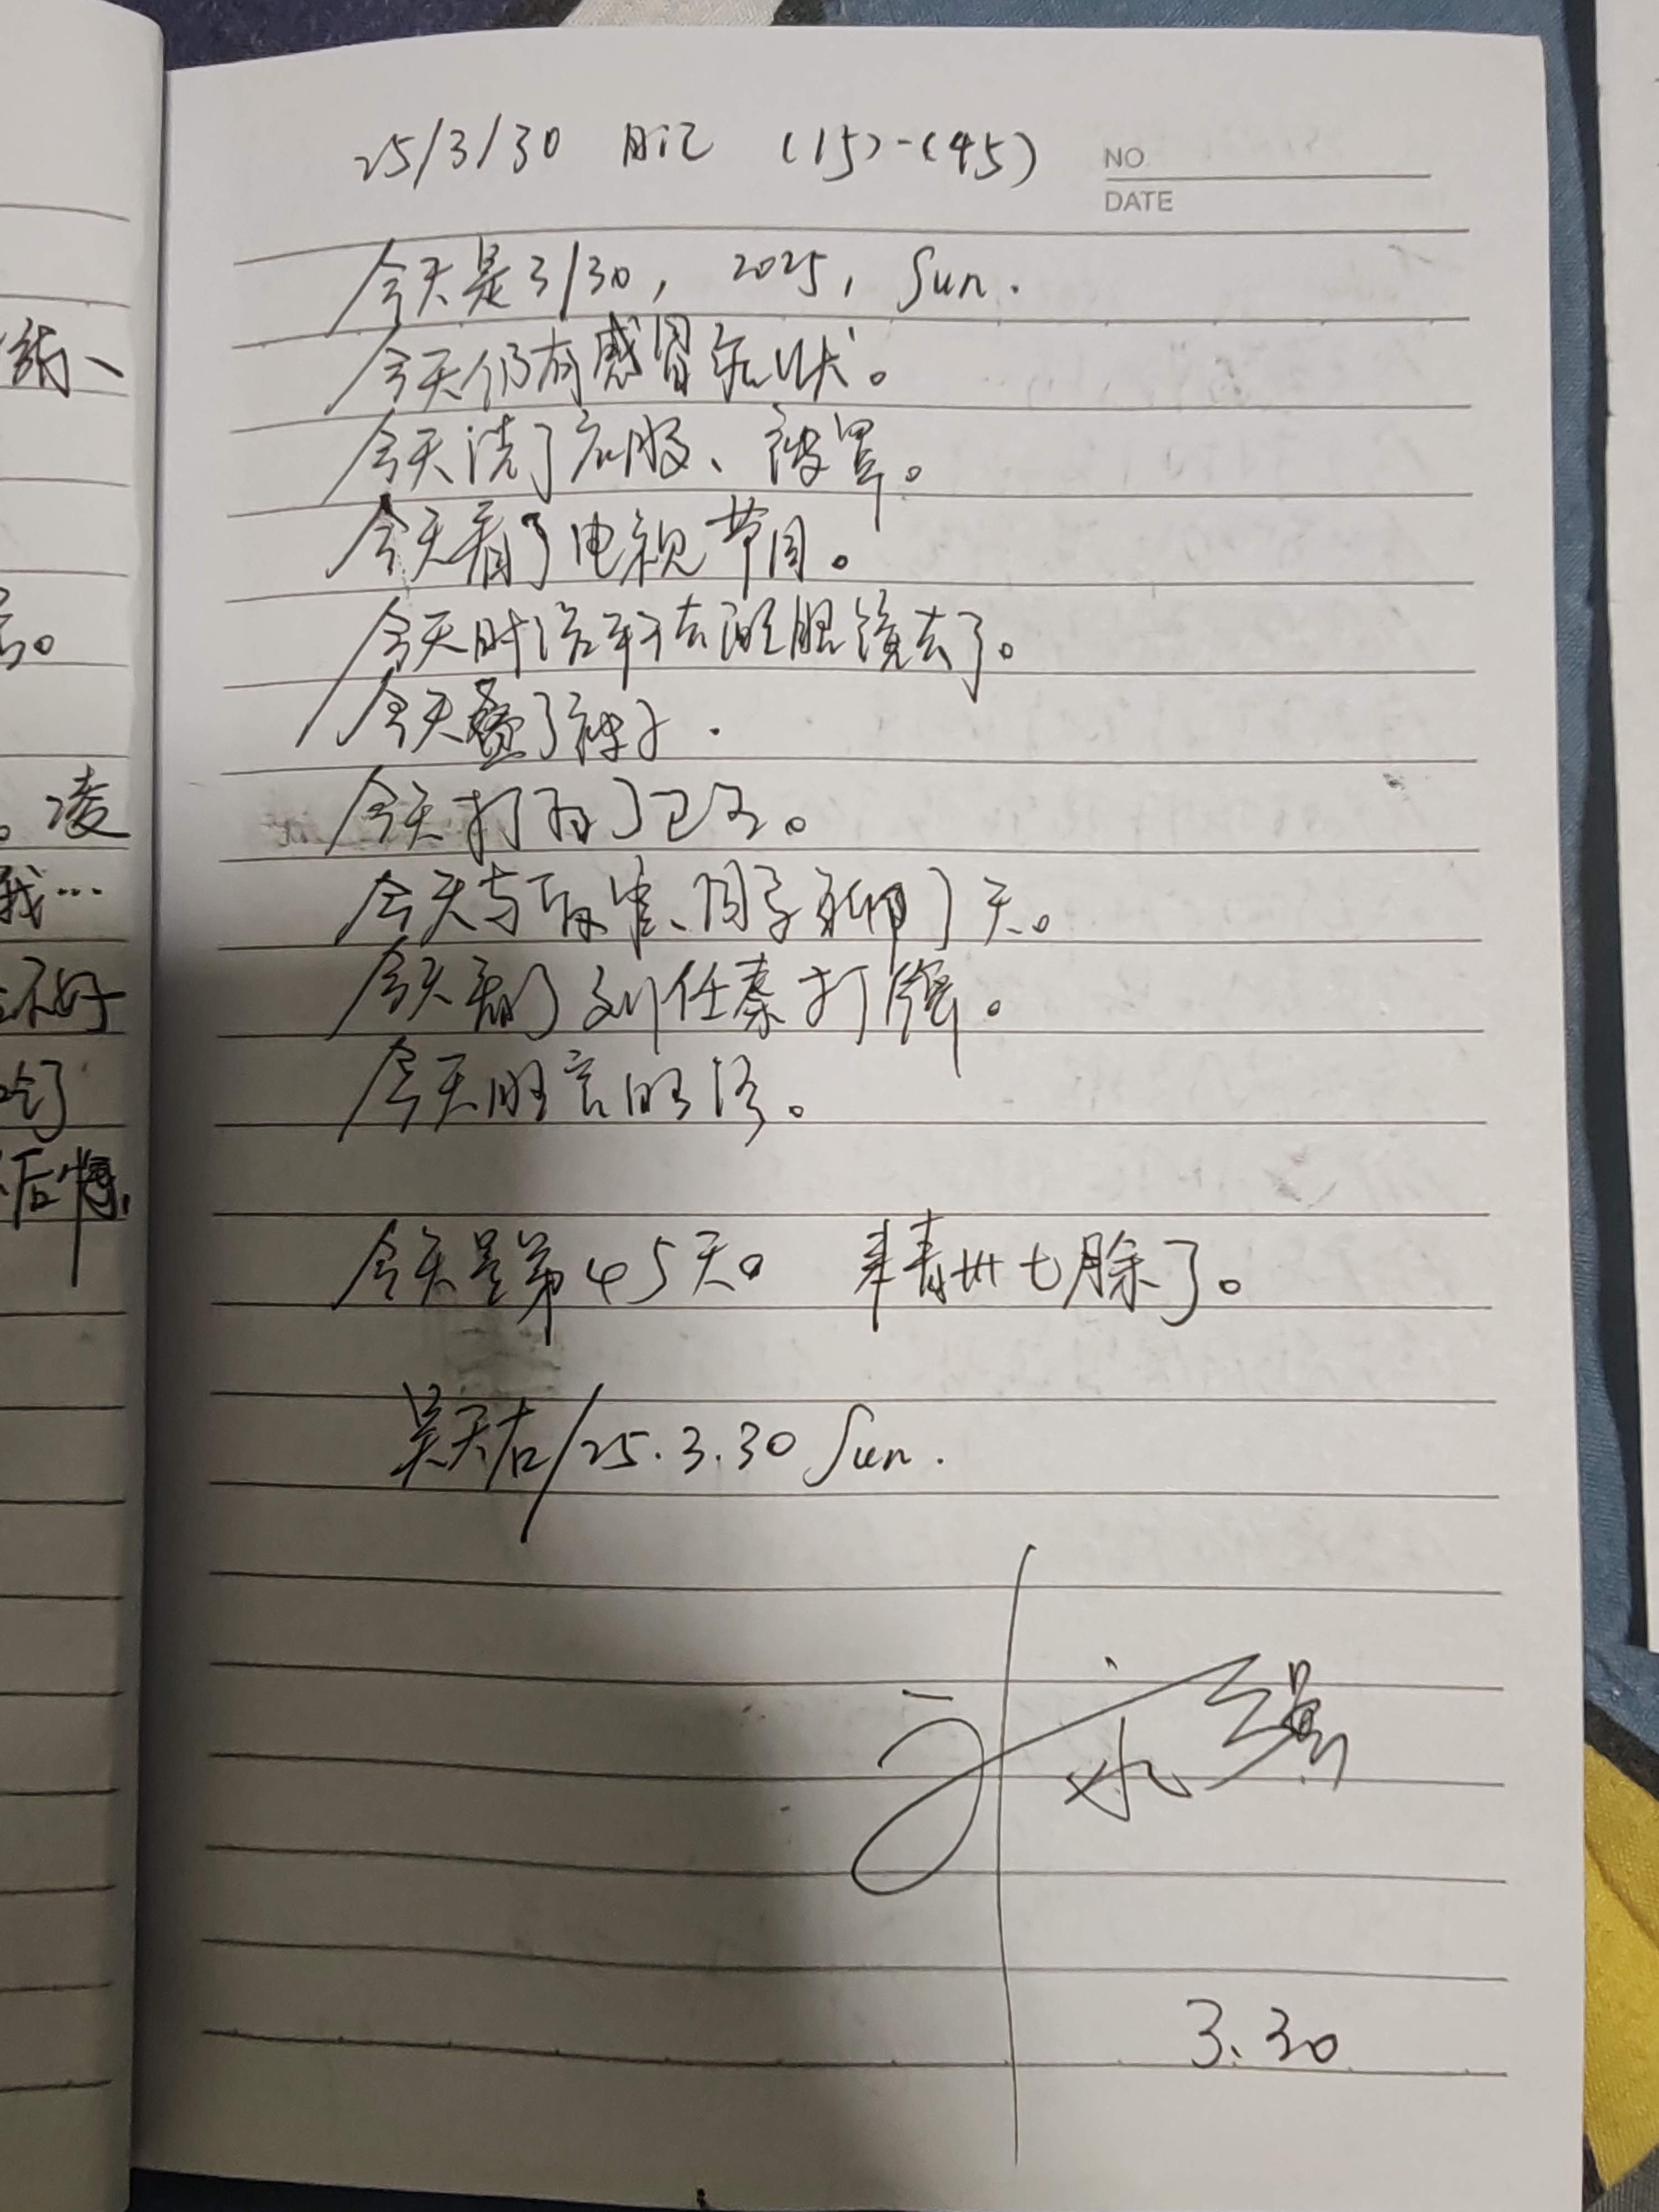 25/3/30 日记 (15)-(45)
NO
DATE
今天是3/30, 2025, Sun.
今天仍有感冒症状。
今天洗了衣服、被罩。
今天看了电视节目。
今天时浩轩去配眼镜去了。
今天叠了被子.
今天打扫了卫生。
今天与聊了天。
今天看了刘任秦打牌。
今天
今天是第45天。 七除了。
吴天右/25.3.30 Sun.
永强
3.30
药、
。凌
我…
不好
吃了
后悔,